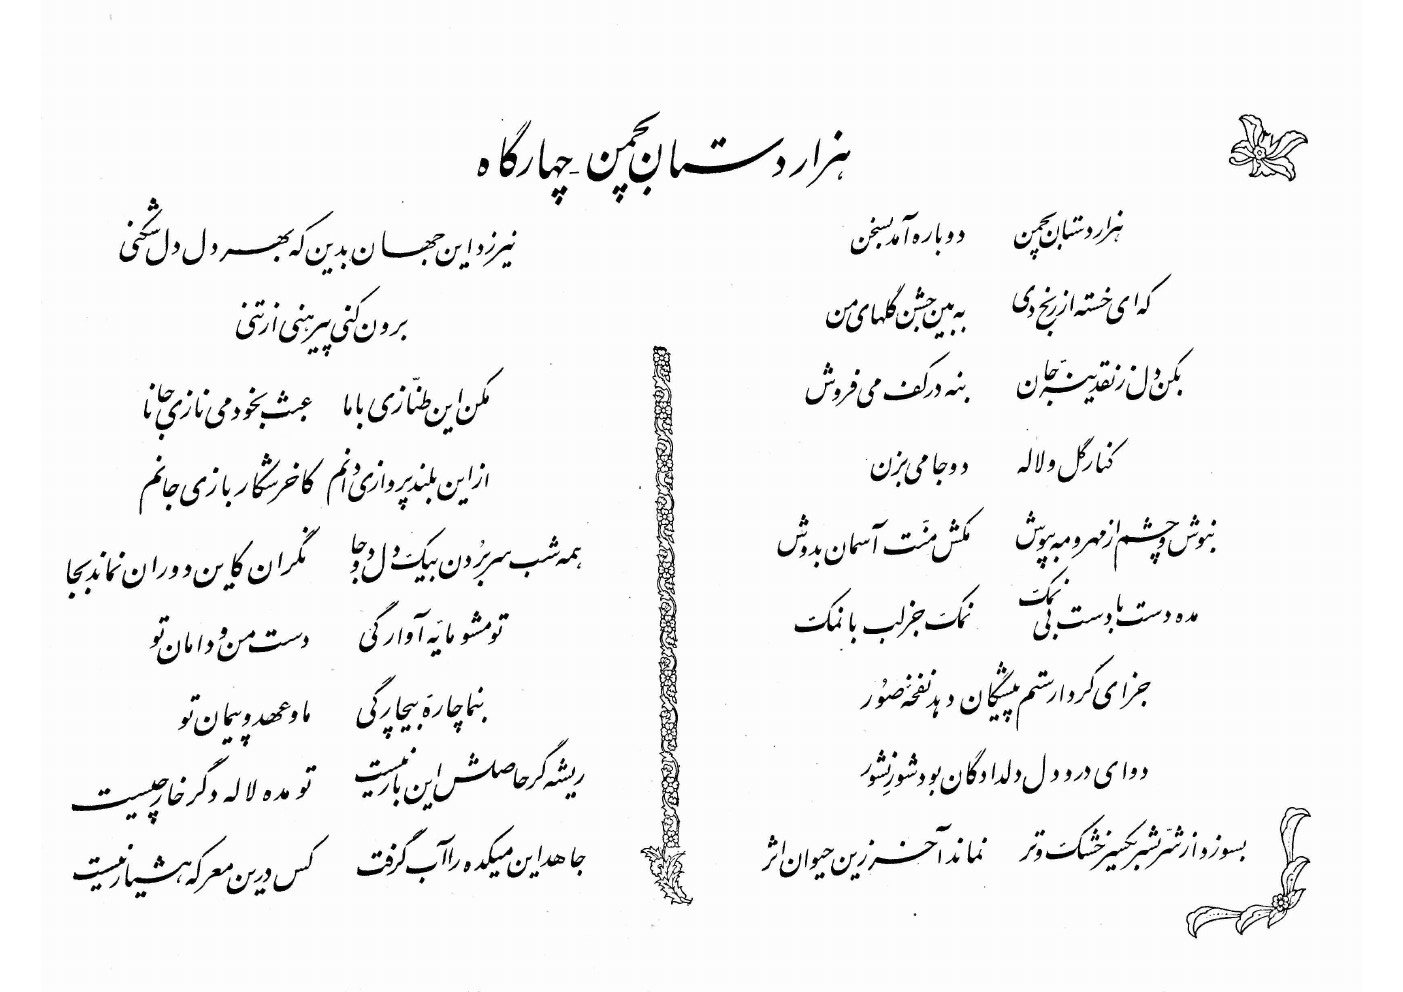 هزار دستان بچمن - چهارگاه
هزار دستان بچمن دوباره آمد بسخن
که ای خسته از رنج دی به بین جشن گلهای من
بکن دل ز نقدینه جان بنه در کف می فروش
کنار گل و لاله دو جامی بزن
بنوش و چشم از مهر و مه بپوش مکش منّت آسمان بدوش
مده دست با دست بی نمک نمک جز لب با نمک
جزای کردار ستم پیشگان دهد نفخهٔ صُور
دوای درد دل دلدادگان بود شور نشور
بسوزد از شرّ شر یکسر خشک و تر نماند آخر زین حیوان اثر
نیرزد این جهان بدین که بهر دل دل شکنی
برون کنی پیرهنی از تنی
مکن این طنّازی با ما عبث بخود می نازی جانا
از این بلند پروازی دانم کاخر شکار بازی جانم
همه شب سر بُردن بیک دل و دو جا نگران کاین دوران نماند بجا
تو مشو مایه آوارگی دست من و دامان تو
بنما چارهٔ بیچارگی ما و عهد و پیمان تو
ریشه گر حاصلش این بار نیست تو مده لاله دگر خار چیست
جاهد این میکده را آب گرفت کس درین معرکه هشیار نیست